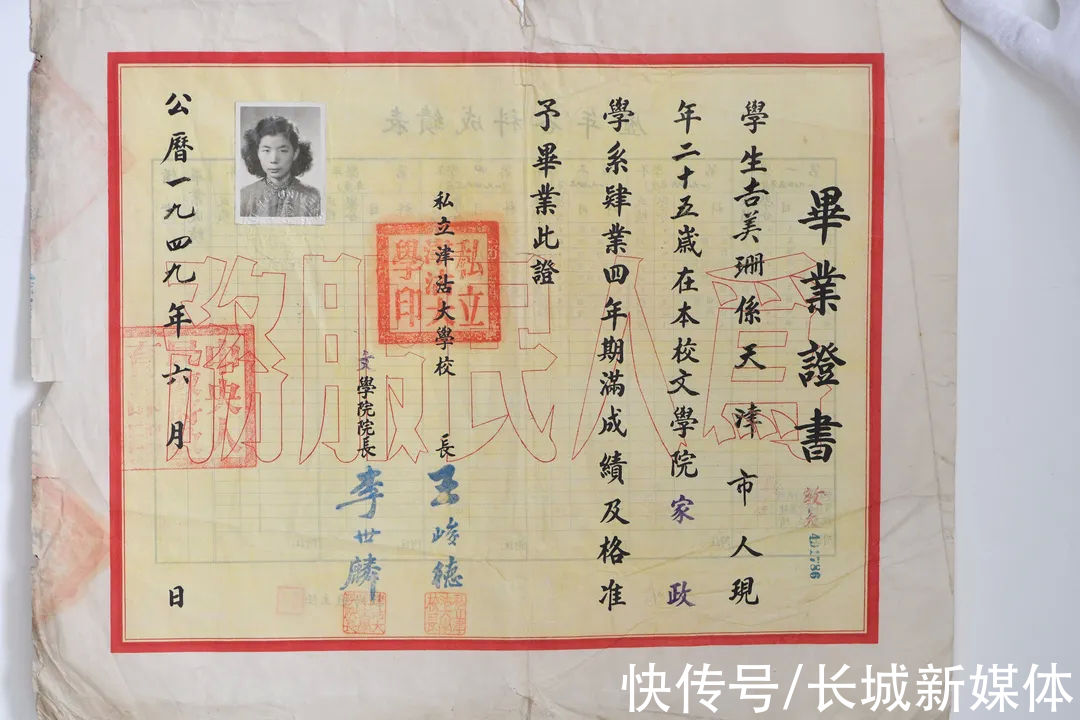 畢業證書
學生吉美珊係天津市人現
年二十五歲在本校文學院家政
學系肄業四年期滿成績及格准
予畢業此證
私立津沽大學校長王峻德
文學院院長李世麟
公曆一九四九年六月 日
為人民服務
私立津沽大學印
快传号/长城新媒体